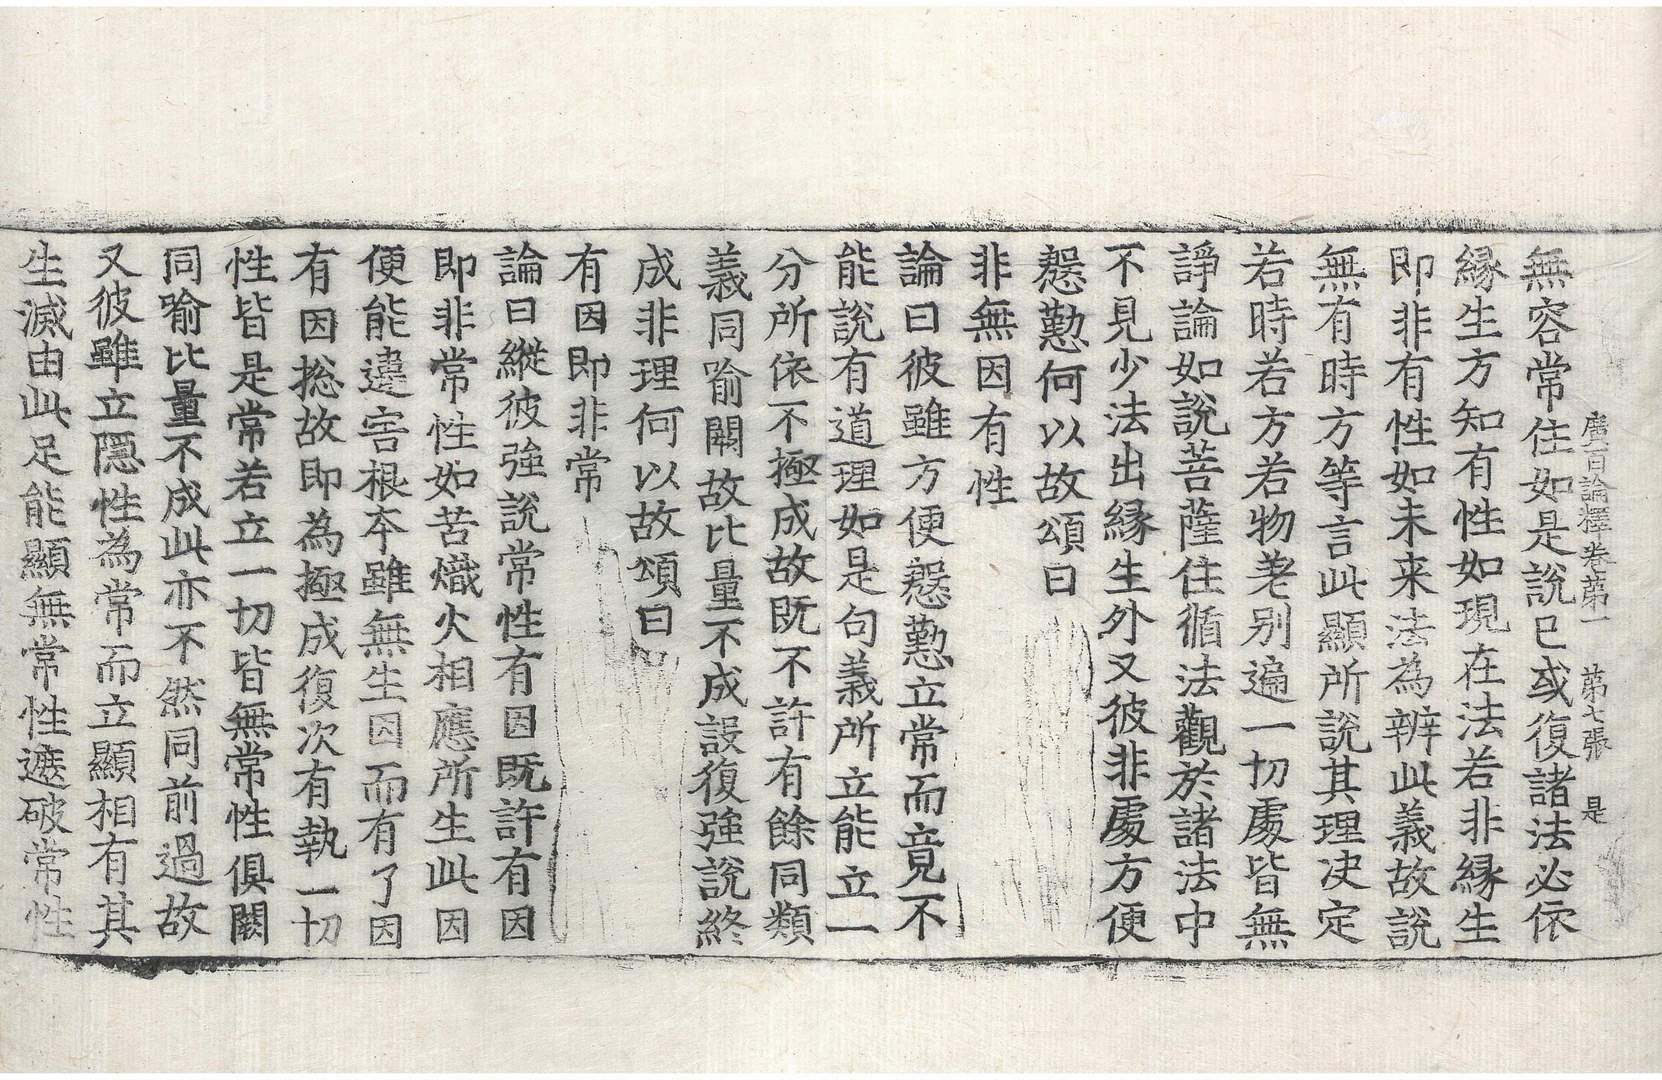 廣百論釋卷苐一　苐七張　是
無容常住如是說已或復諸法必依
緣生方知有性如現在法若非緣生
即非有性如未来法為辨此義故說
無有時方等言此顯所說其理决定
若時若方若物差別遍一切處皆無
諍論如說菩薩住循法觀於諸法中
不見少法出緣生外又彼非處方便
慇懃何以故頌曰
非無因有性
論曰彼雖方便慇懃立常而竟不
能說有道理如是句義所立能立一
分所依不極成故既不許有餘同類
義同喻闕故比量不成設復強說終
成非理何以故頌曰
有因即非常
論曰縱彼強說常性有因既許有因
即非常性如苦熾火相應所生此因
便能違害根夲雖無生因而有了因
有因揔故即為極成復次有執一切
性皆是常若立一切皆無常性俱闕
同喻比量不成此亦不然同前過故
又彼雖立隱性為常而立顯相有其
生滅由此足能顯無常性遮破常性